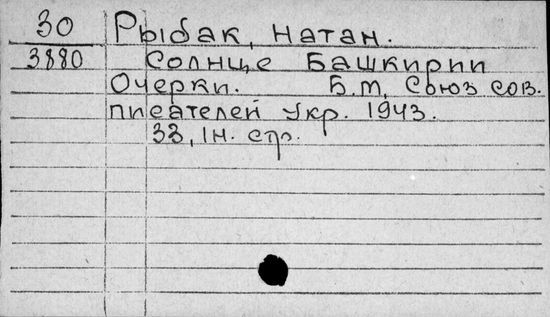 30 Рыбак, Натан.
3880 Солнце Башкирии
Очерки. Б.м, Союз сов.
писателей Укр. 1943.
33, 1н. стр.